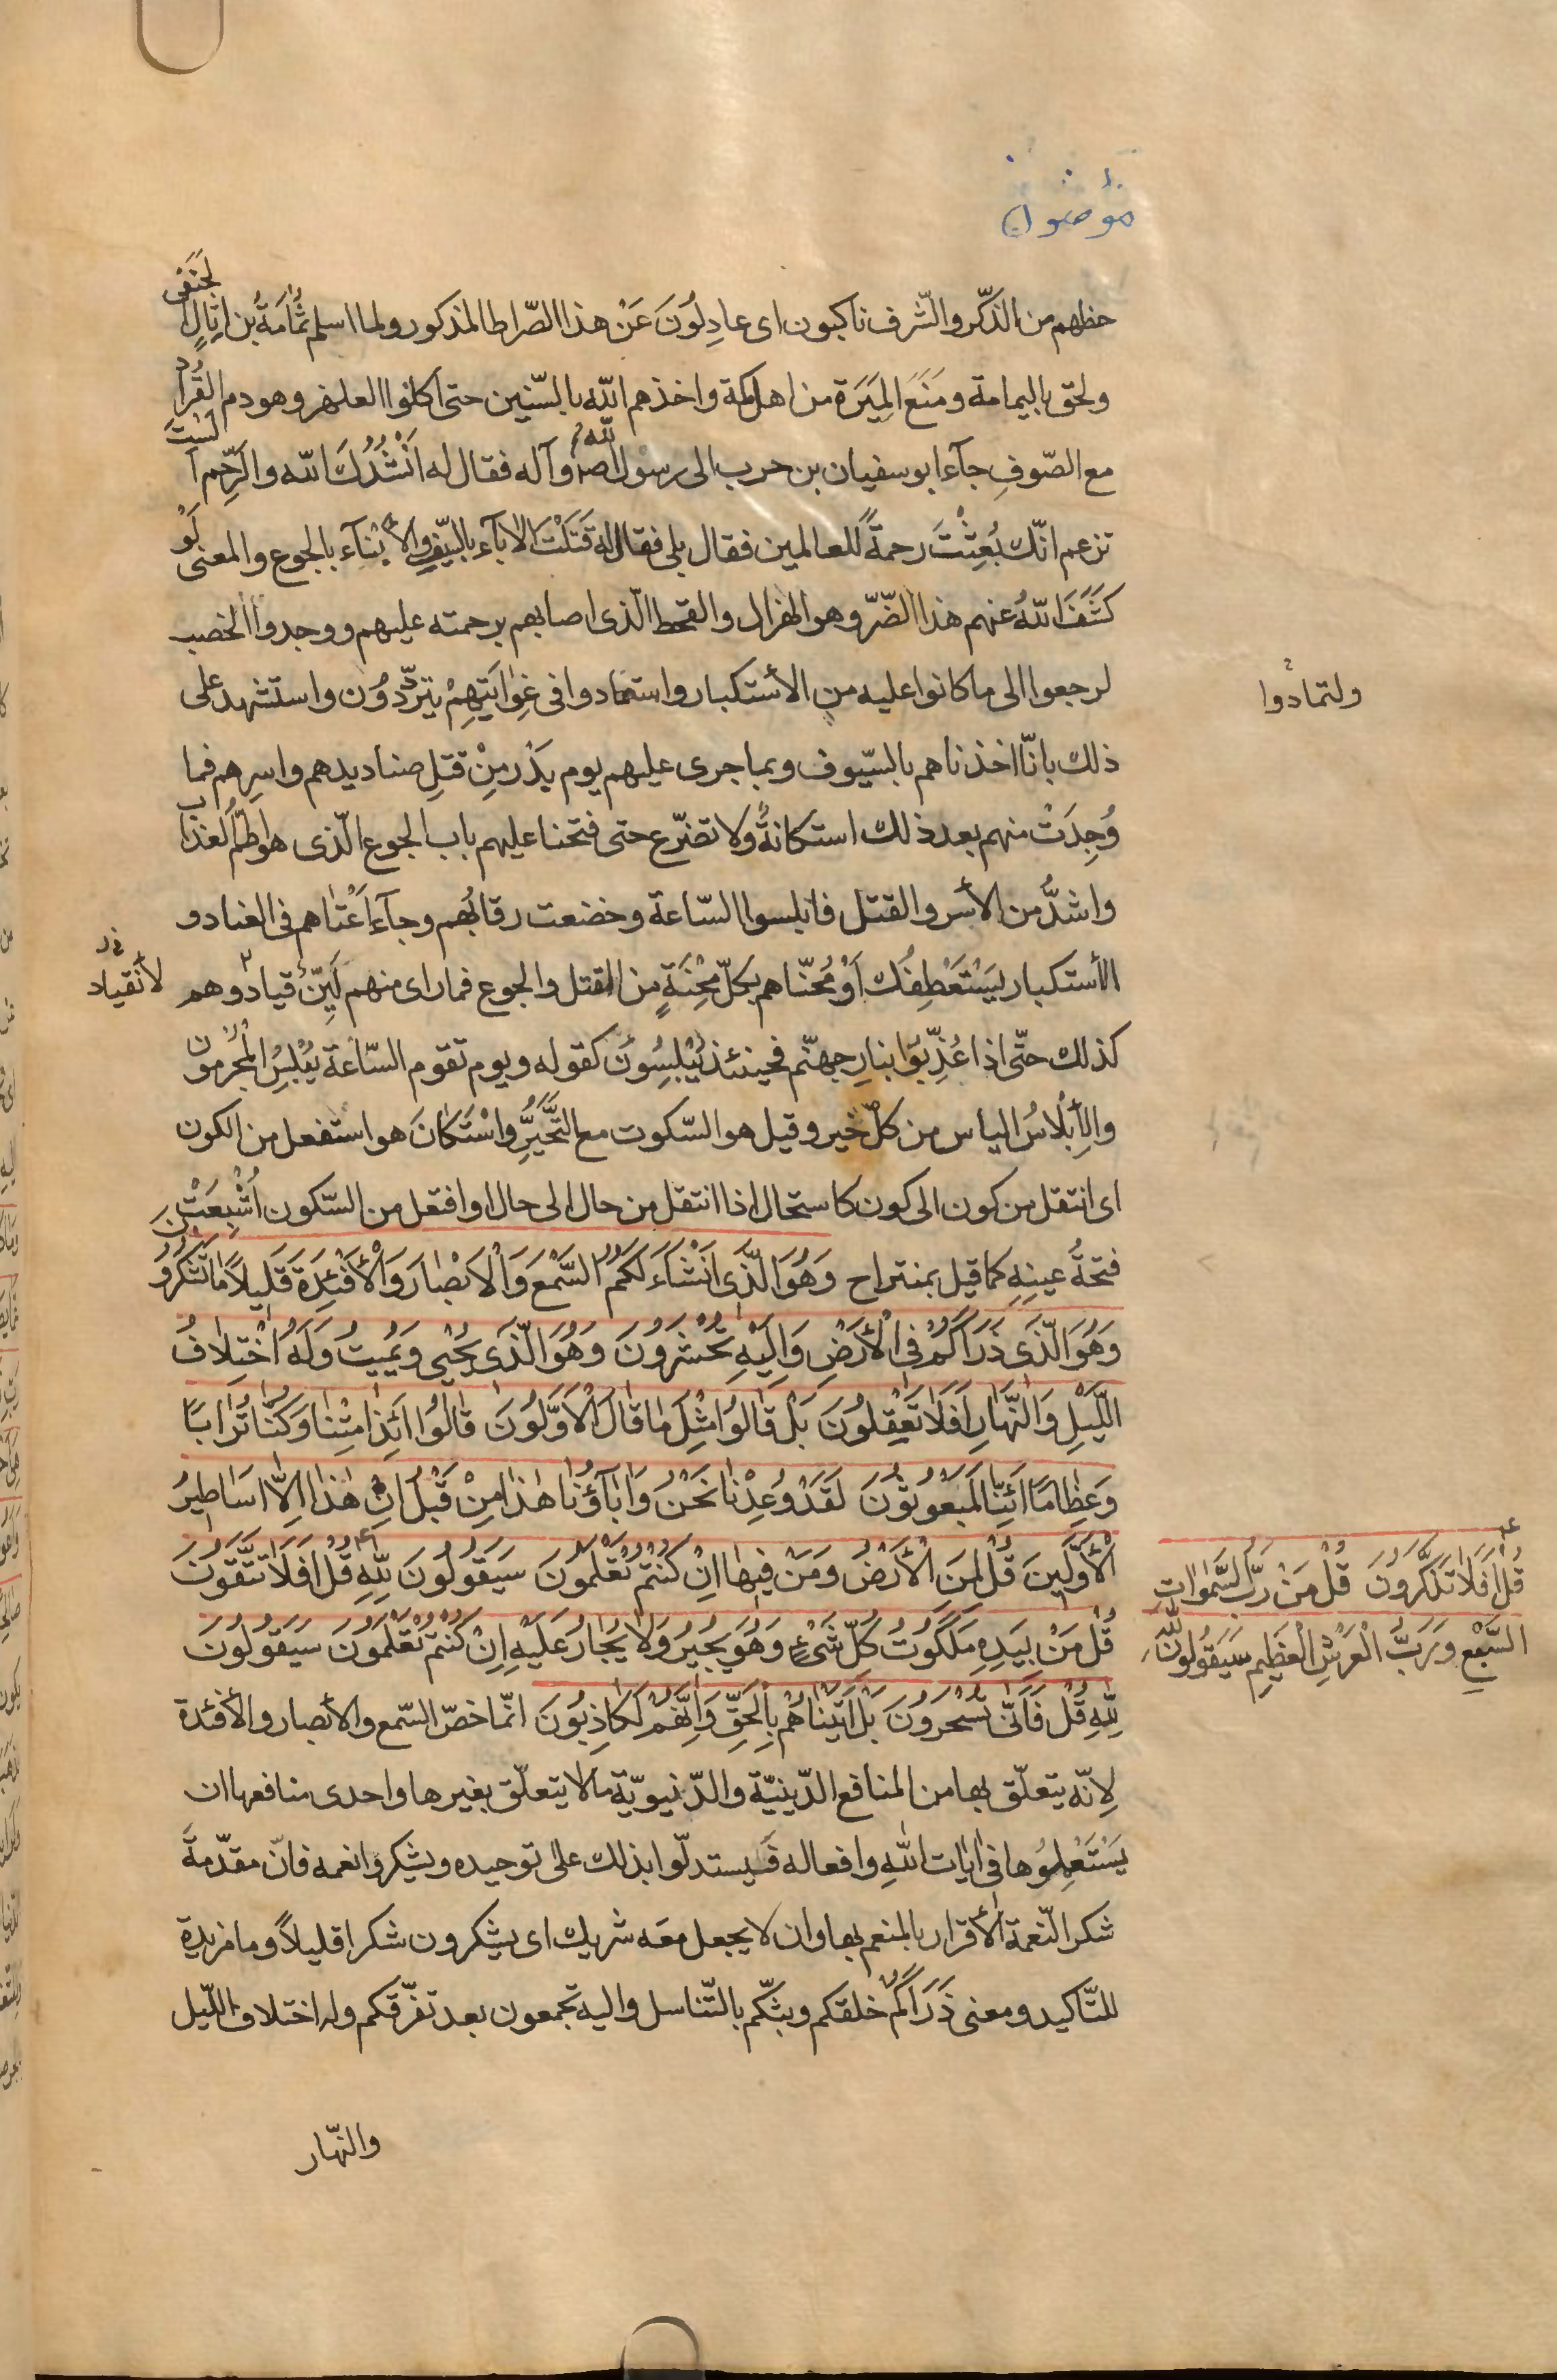 مؤمنون
حظهم من الذّكر والشّرف ناكبون اى عادِلُونَ عَنْ هذا الصّراط المذكور ولما اسلم ثُمَامَةُ بن اثِالٍ الحَنَفى
ولحق باليمامة ومَنَعَ المِيَرَة من اهل مكة واخذهم الله بالسّنين حتى اكلوا العلهز وهو دم القُرادِ
مع الصّوفِ جآء ابو سفيان بن حرب الى رسول الله صم وآله فقال له اَنْشُدُكَ الله والرّحِم ألستَ
تزعم انّك بُعِثْتَ رحمةً للعالمين فقال بلى فقال له قَتَلْتَ الآبآء بالسّيف والأبْنآء بالجوع والمعنى لَوْ
كَشَفَ اللهُ عنهم هذا الضّرّ وهو الهزال والقحط الّذى اصابهم برحمته عليهم ووجدوا الخصب
لرجعوا الى ما كانوا عليه من الأستكبار واستمادوا فى غِوٰايَتِهِمْ يتردّدوُن واستشهد على
ولتمادوا
ذلك بانّا اخذناهم بالسّيوف وبما جرى عليهم يوم بَدْر مِنْ قتلِ صناديدهم واسرِهم فما
وُجِدَتْ منهم بعد ذلك استكانةٌ ولا تضرّع حتى فتحنا عليهم باب الجوع الّذى هو اطمّ العذاب
واشدُّ من الأسر والقتل فابلسوا السّاعة وخضعت رقابُهم وجآء اَعْتاهم فى العناد و
الأستكبار يَسْتَعْطِفُك اَوْ مُحنّاهم بكلّ مِحْنَةٍ من القتل والجوع فما راى منهم لَيِّنُ قياد وهم
لأنقياد
كذلك حتّى اذا عُذِّبُوا بنارِ جهنّم فحينئذ يُبْلِسُونَ كقوله ويوم تقوم السّاعة يُبْلِسُ المجْرمون
والإبْلاسُ الياس من كلّ خير وقيل هو السّكوت مع التَّحَيُّر واسْتَكٰانَ هو استفعل من الكون
اى انتقل من كون الى كون كاستحال اذا انتقل من حال الى حال او افتعل من السّكون اُشْبِعَتْ
فتحةُ عينِهِ كما قيل بمنتزاح وَهُوَ الَّذى اَنْشَاَ لَكُمُ السَّمْعَ وَالْاَبْصٰارَ وَالْأَفْئِدَةَ قَلِيلاً مٰا تَشْكُرُونَ
وَهُوَ الَّذى ذَرَاَكُمْ فِى الْأَرْضِ وَاِلَيْهِ تُحْشَرُونَ وَهُوَ الَّذى يُحْيى وَيُميتُ وَلَهُ اخْتِلٰافُ
اللَّيْلِ وَالنَّهٰارِ اَفَلٰا تَعْقِلُونَ بَلْ قٰالُوا مِثْلَ مٰا قٰالَ الْاَوَّلُونَ قٰالُوا ائَذٰا مِتْنٰا وَكُنّٰا تُرٰاباً
وَعِظٰاماً ائَنّٰا لَمَبْعُوثُونَ لَقَدْ وُعِدْنٰا نَحْنُ وَاٰبٰآؤُنٰا هٰذٰا مِنْ قَبْلُ اِنْ هٰذٰا اِلّٰا اَسٰاطيرُ
الْأَوَّلينَ قُلْ لِمَنِ الْأَرْضُ وَمَنْ فيهٰا اِنْ كُنْتُمْ تَعْلَمُونَ سَيَقُولُونَ لِلّٰهِ قُلْ اَفَلٰا تَتَّقُونَ
قُلْ اَفَلٰا تَذَكَّرُونَ قُلْ مَنْ رَبُّ السَّمٰوٰاتِ
السَّبْعِ وَرَبُّ الْعَرْشِ الْعَظيمِ سَيَقُولُونَ لِلّٰهِ
قُلْ مَنْ بِيَدِهِ مَلَكُوتُ كُلِّ شَىْءٍ وَهُوَ يُجيرُ وَلٰا يُجٰارُ عَلَيْهِ اِنْ كُنْتُمْ تَعْلَمُونَ سَيَقُولُونَ
لِلّٰهِ قُلْ فَاَنّٰى تُسْحَرُونَ بَلْ اَتَيْنٰاهُمْ بِالْحَقِّ وَاِنَّهُمْ لَكٰاذِبُونَ انّما خصّ السّمع والأبصار والأفئدة
لِانّه يتعلّق بها من المنافع الدّينيّة والدّنيويّة ما لا يتعلّق بغيرها واحدى منافعها ان
يَسْتَعْمِلُوُها فى اٰيات اللهِ وافعاله فَيستدلّوا بذلك على توحيده ويشكروا نعمه فانّ مقدّمةَ
شكر النّعمة الأقرار بالمنعم بها وان لا يجعل معَه شريك اى يشكرون شكرا قليلاً وما مزيدة
للتّاكيد ومعنى ذَرَاَكُمْ خلقكم وبثّكم بالتّناسل واليه تجمعون بعد تفرّقكم وله اختلاف اللّيل
والنّهار